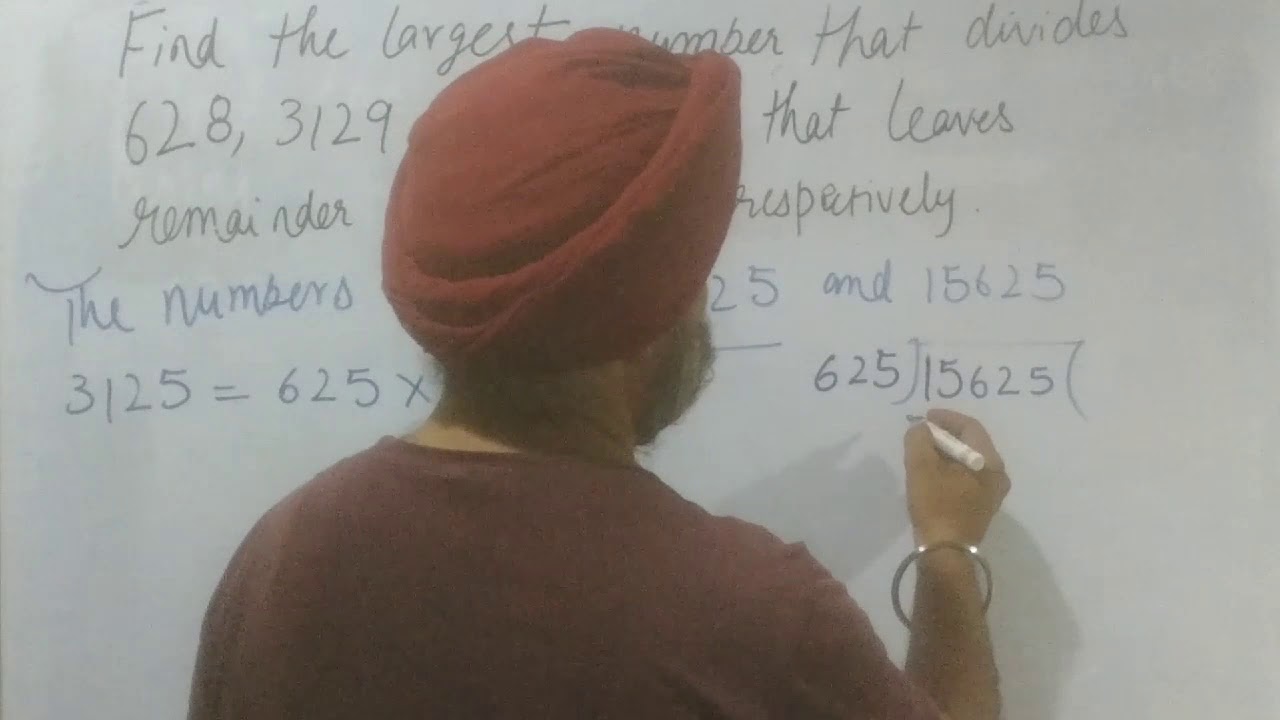 Find the largest number that divides
628, 3129 that leaves
remainder respectively.
The numbers 25 and 15625
3125 = 625 × 625)15625(